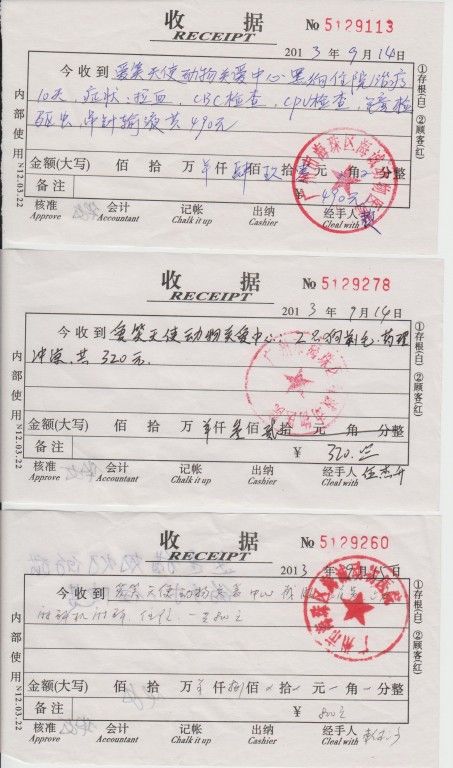 收据
RECEIPT
No 5129113
2013年9月14日
今收到 爱笑天使动物关爱中心 黑狗住院治疗
10天,症状:拉血,CBC检查,CPV检查,
驱虫,吊针输液共490元
金额(大写) 佰 拾 万 仟 肆佰 玖拾 元 角 分整
备注 ¥ 490元
核准 会计 记帐 出纳 经手人
Approve Accountant Chalk it up Cashier Cleal with
内部使用 N12.03.22
①存根(白) ②顾客(红)
广州市海珠区海波动物医
收据
RECEIPT
No 5129278
2013年9月14日
今收到 爱笑天使动物关爱中心 2只狗剪毛 药理
冲凉 共320元
金额(大写) 佰 拾 万 仟 叁佰 贰拾 元 角 分整
备注 ¥ 320.
核准 会计 记帐 出纳 经手人
Approve Accountant Chalk it up Cashier Cleal with
内部使用 N12.03.22
①存根(白) ②顾客(红)
收据
RECEIPT
No 5129260
2013年9月 日
今收到 爱笑天使动物关爱中心
住院 共800元
金额(大写) 佰 拾 万 仟 捌佰 拾 元 角 分整
备注 ¥ 800元
核准 会计 记帐 出纳 经手人
Approve Accountant Chalk it up Cashier Cleal with
内部使用 N12.03.22
①存根(白) ②顾客(红)